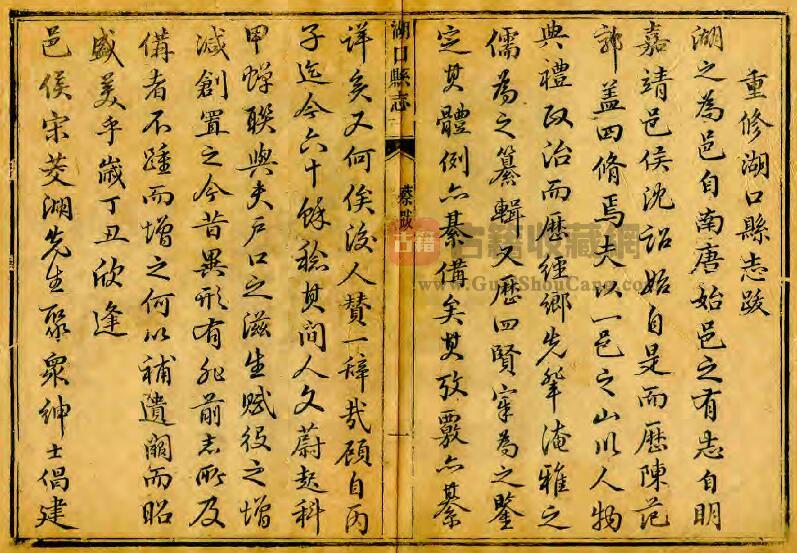 重修湖口縣志跋
湖之為邑自南唐始邑之有志自明
嘉靖邑侯沈詔始自是而歷陳范
郭蓋四脩焉夫以一邑之山川人物
典禮政治而歷經鄉先輩淹雅之
儒為之纂輯又歷四賢宰為之鑒
定其體例亦綦備矣其攷覈亦綦
湖口縣志
蔡跋
一
詳矣又何俟後人贊一辭哉顧自丙
子迄今六十餘稔其間人文蔚起科
甲蟬聯與夫戶口之滋生賦役之增
減創置之今昔異形有非前志所及
備者不踵而增之何以補遺闕而昭
盛美乎歲丁丑欣逢
邑侯宋茭湖先生聚衆紳士倡建
古籍
古籍收藏網
www.GuJiShouCang.com